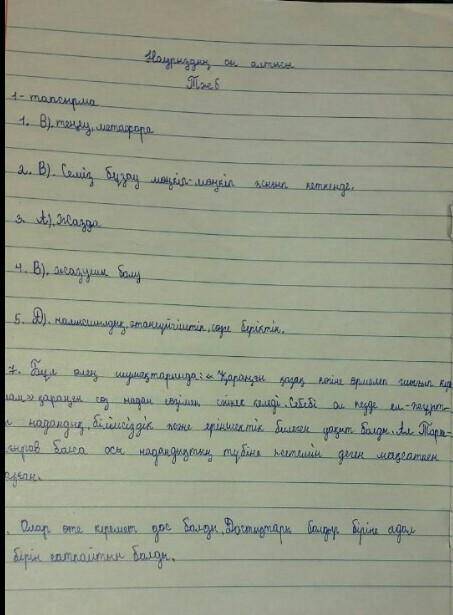 Наурыздың он алтысы
Тжб
1- тапсырма
1. В). теңеу, метафора
2. В). Семіз бұзау мөңкіп-мөңкіп жынып кеткенде.
3. А). Жазда
4. В). жазушы болу
5. Д). намысшылдық, отансүйгіштік, сөзге беріктік.
7. Бұл өлең шумақтарында: « Қараңғы қазақ көгіне өрмелеп шығып күн
» қараңғы сөз надан сөзімен сәйкес келеді. Себебі ол кезде ел-жұрт-
надандық, білімсіздік және еріншектік билеген уақыт болды. Ал
болса осы надандықтың түбіне жетемін деген мақсатпен
. Олар өте керемет дос болды. Достықтары болдур біріне адал
бірін сатпайтын болды.